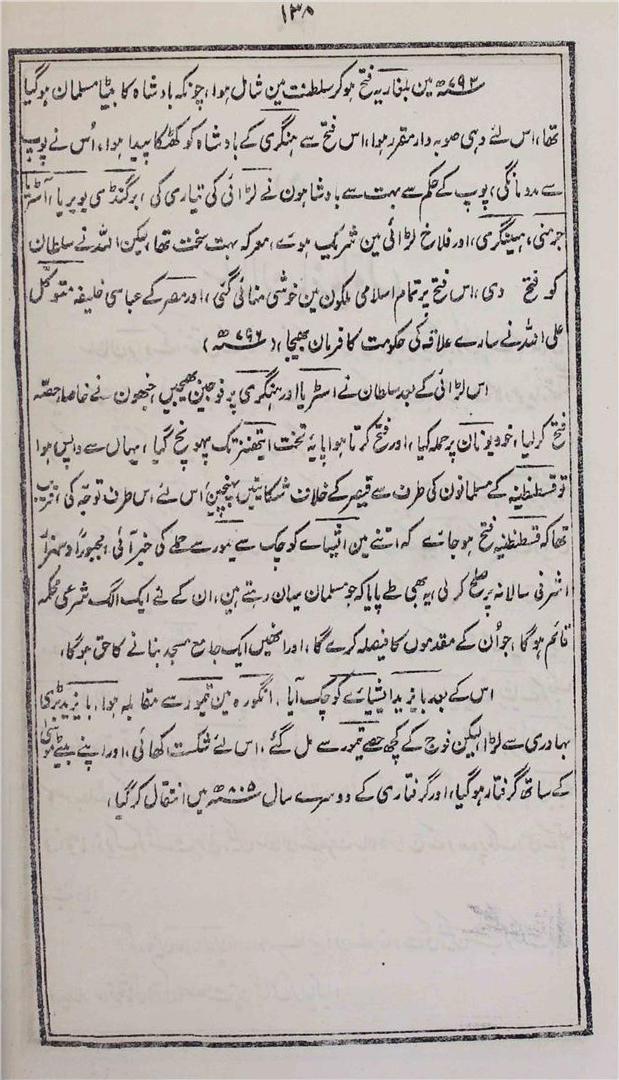 ۱۳۸
۷۹۳ھ مین بلغاریہ فتح ہوکر سلطنت مین شامل ہوا، چونکہ بادشاہ کا بیٹا مسلمان ہوگیا
تھا، اس لئے وہی صوبہ دار مقرر ہوا، اس فتح سے ہنگری کے بادشاہ کو کھٹکا پیدا ہوا، اُس نے پوپ
سے مدد مانگی، پوپ کے حکم سے بہت سے بادشاہون نے لڑائی کی تیاری کی، برگنڈی، بویریا، آسٹریا
جرمنی، ہینگری، اور فلاخ لڑائی مین شریک ہوئے، معرکہ بہت سخت تھا، لیکن اللہ نے سلطان
کو فتح دی، اس فتح پر تمام اسلامی ملکون مین خوشی منائی گئی، اور مصر کے عباسی خلیفہ متوکل
علی اللہ نے سارے علاقہ کی حکومت کا فرمان بھیجا، (۷۹۶ھ)
اس لڑائی کے بعد سلطان نے اسٹریا اور ہنگری پر فوجین بھیجیں جنھون نے خاصا حصّہ
فتح کرلیا، خود یونان پر حملہ کیا، اور فتح کرتا ہوا پایۂ تخت ایتھنز تک پہونچ گیا، یہاں سے واپس ہوا
تو قسطنطنیہ کے مسلمانون کی طرف سے قیصر کے خلاف شکایتیں پہنچیں، اس لئے اس طرف توجّہ کی، قریب
تھا کہ قسطنطنیہ فتح ہوجائے کہ اتنے مین ایشیاے کوچک سے تیمور سے حملے کی خبر آئی، مجبوراً دس ہزار
اشرفی سالانہ پر صلح کرلی، یہ بھی طے پایا کہ جو مسلمان یہان رہتے ہین، ان کے لئے ایک الگ شرعی محکمہ
قائم ہوگا، جو اُن کے مقدموں کا فیصلہ کرے گا، اور انھیں ایک جامع مسجد بنانے کا حق ہوگا،
اس کے بعد بایزید ایشیاے کوچک آیا، انگورہ مین تیمور سے مقابلہ ہوا، بایزید بڑی
بہادری سے لڑا، لیکن فوج کے کچھ حصے تیمور سے مل گئے، اس لئے شکست کھائی، اور اپنے بیٹے موسیٰ
کے ساتھ گرفتار ہوگیا، اور گرفتاری کے دوسرے سال ۸۰۵ھ میں انتقال کرگیا،